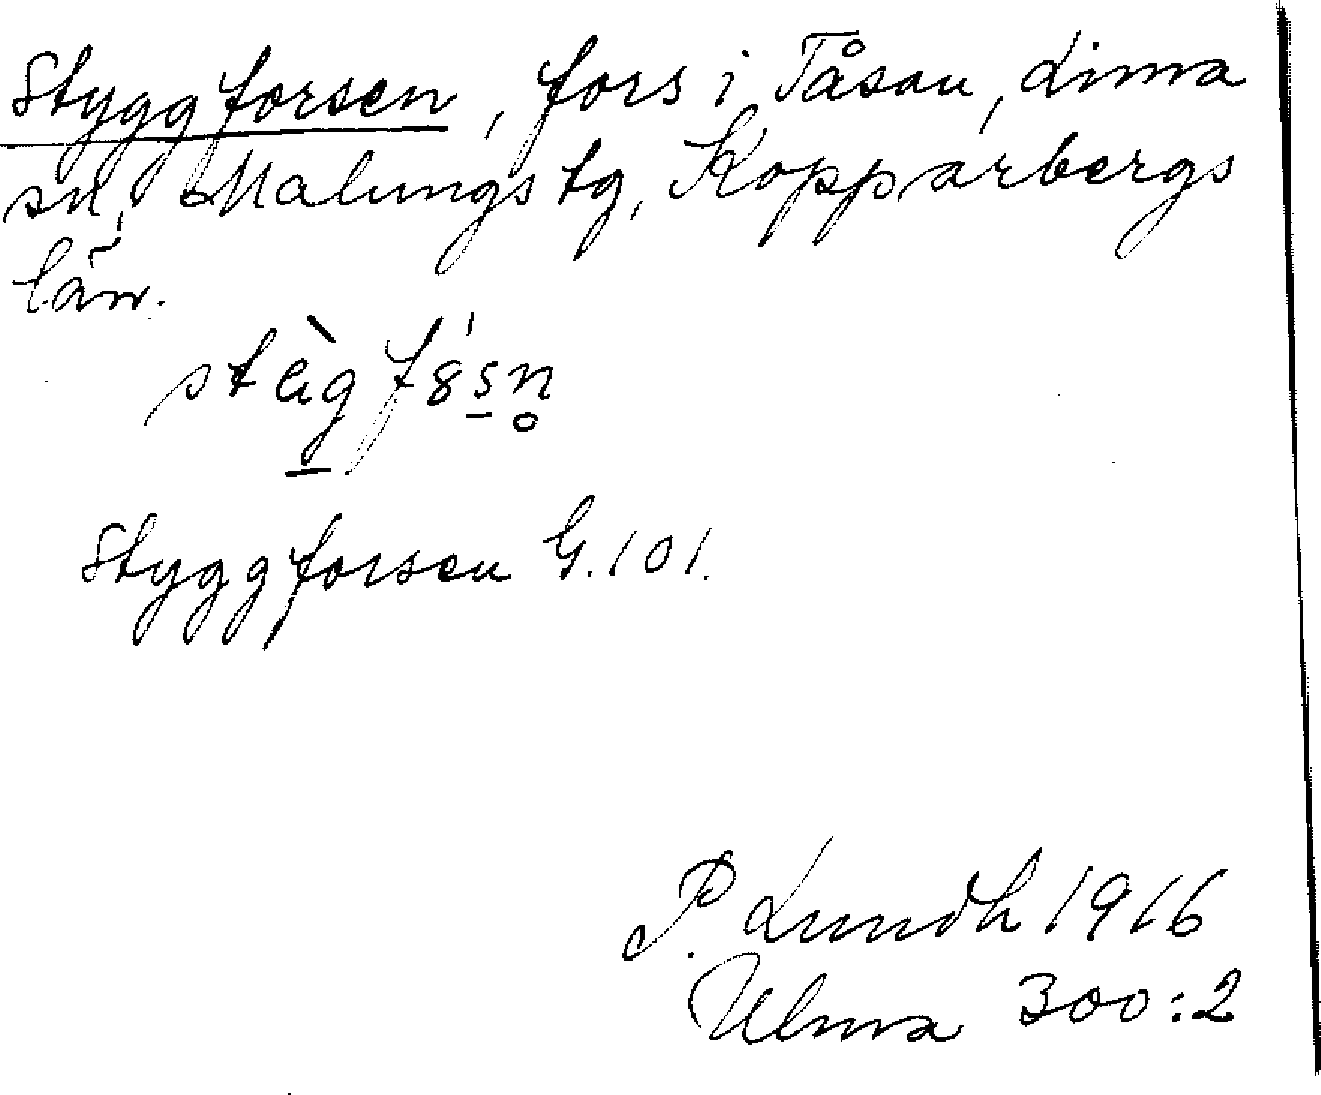 Styggforsen, fors i Tåsan, Lima
sn, Malungs tg, Kopparbergs
län.
Styggforsen G. 101.
P. Lundh 1916
Ulma 300:2